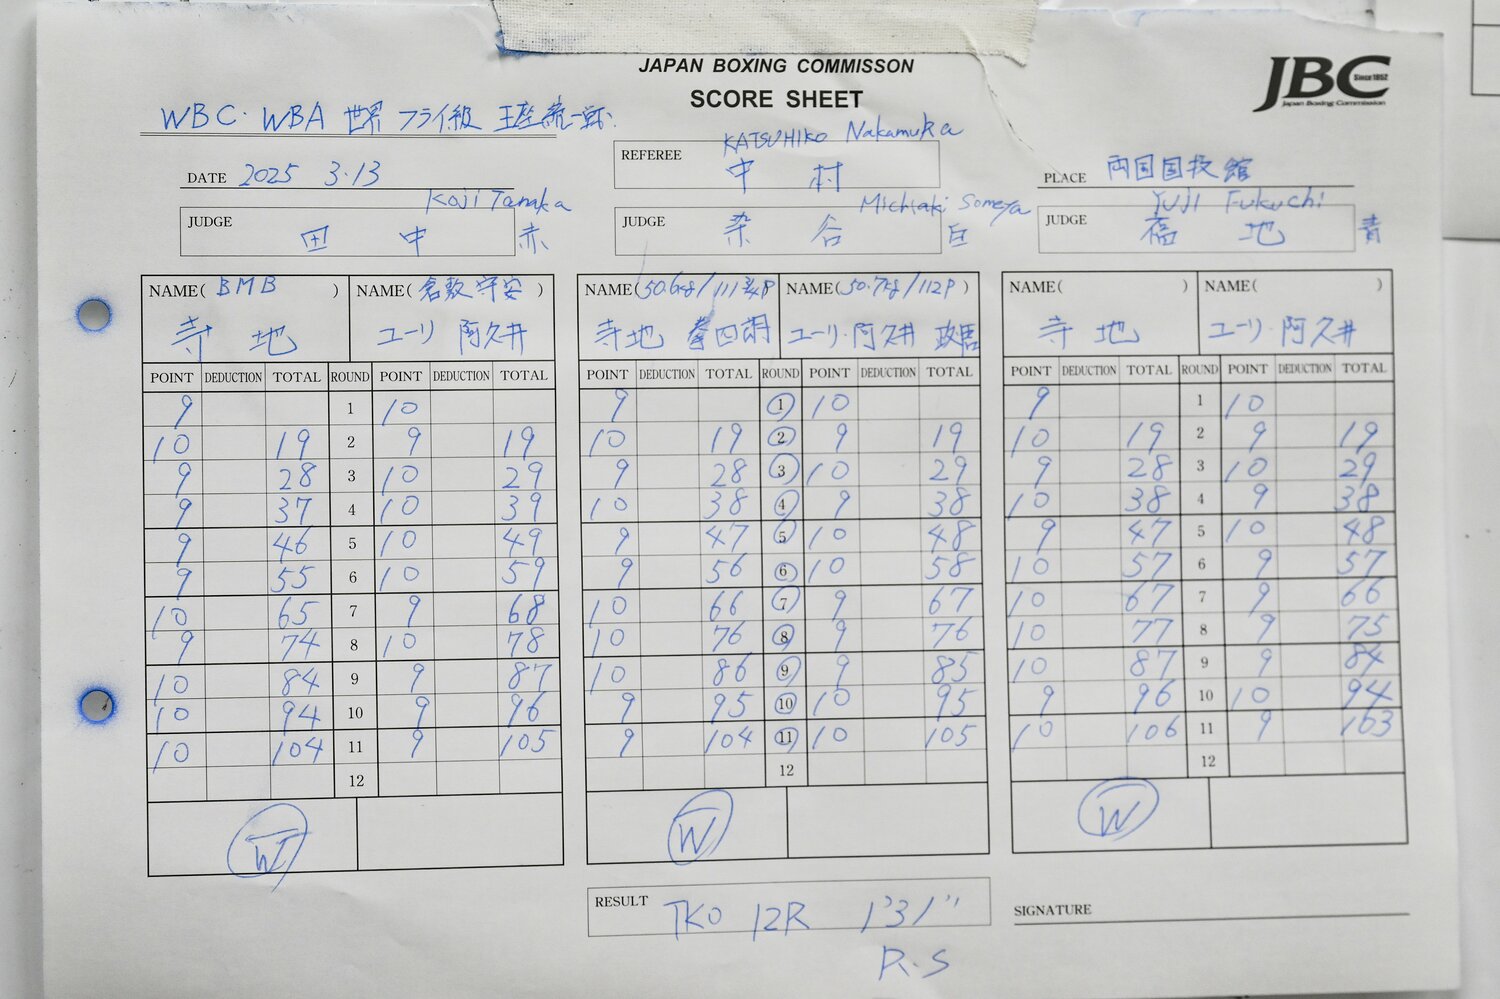 JAPAN BOXING COMMISSON
SCORE SHEET
JBC Since 1952
Japan Boxing Commission
WBC・WBA 世界 フライ級 王座統一戦
DATE 2025 3.13
REFEREE KATSUHIKO Nakamura
中村
PLACE 両国国技館
JUDGE Koji Tanaka
田中 赤
JUDGE Michiaki Someya
染谷 白
JUDGE Yuji Fukuchi
福地 青
NAME( BMB ) NAME( 倉敷守安 )
寺地 ユーリ 阿久井
POINT DEDUCTION TOTAL ROUND POINT DEDUCTION TOTAL
9 1 10
10 19 2 9 19
9 28 3 10 29
9 37 4 10 39
9 46 5 10 49
9 55 6 10 59
10 65 7 9 68
9 74 8 10 78
10 84 9 9 87
10 94 10 9 96
10 104 11 9 105
12
W
NAME(50.6kg/111 3/4P) NAME(50.7kg/112P)
寺地 拳四朗 ユーリ・阿久井 政悟
POINT DEDUCTION TOTAL ROUND POINT DEDUCTION TOTAL
9 1 10
10 19 2 9 19
9 28 3 10 29
10 38 4 9 38
9 47 5 10 48
9 56 6 10 58
10 66 7 9 67
10 76 8 9 76
10 86 9 9 85
9 95 10 10 95
9 104 11 10 105
12
W
NAME( ) NAME( )
寺地 ユーリ・阿久井
POINT DEDUCTION TOTAL ROUND POINT DEDUCTION TOTAL
9 1 10
10 19 2 9 19
9 28 3 10 29
10 38 4 9 38
9 47 5 10 48
10 57 6 9 57
10 67 7 9 66
10 77 8 9 75
10 87 9 9 84
9 96 10 10 94
10 106 11 9 103
12
W
RESULT TKO 12R 1'31''
R.S
SIGNATURE